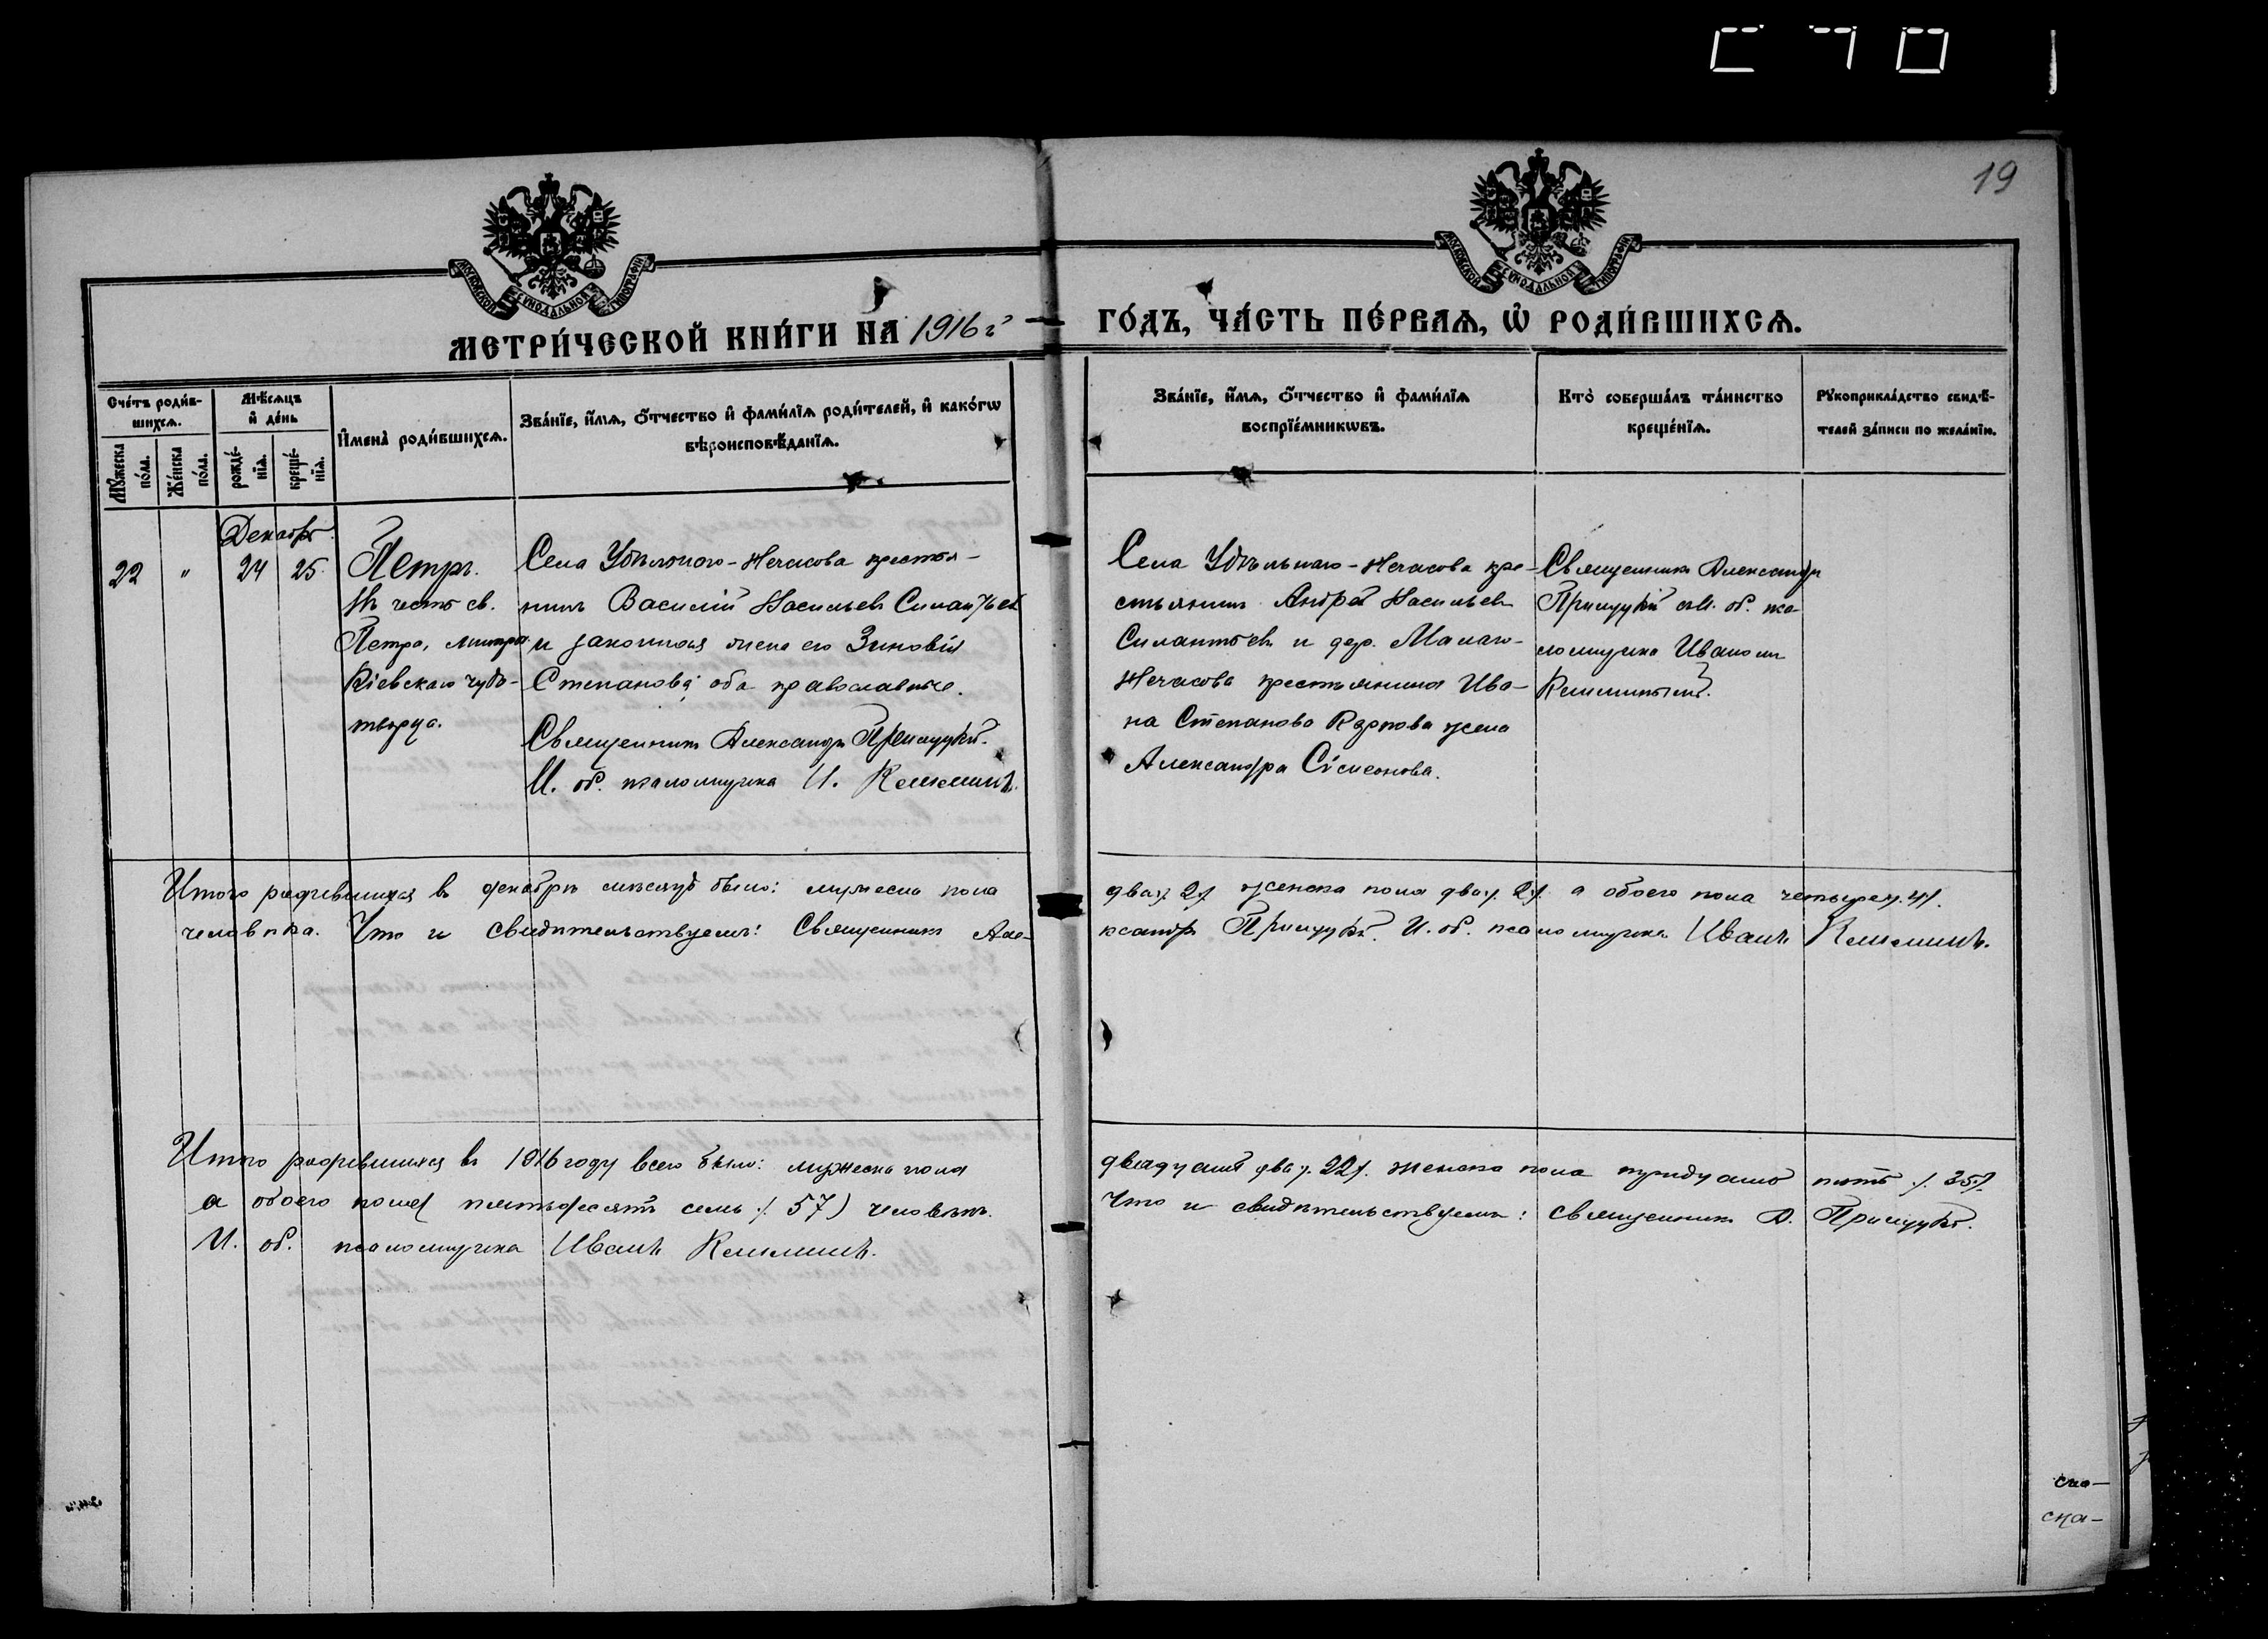 19
МОСКОВСКОЙ СѴНОДАЛЬНОЙ ТИПОГРАФІИ
МОСКОВСКОЙ СѴНОДАЛЬНОЙ ТИПОГРАФІИ
МЕТРИ́ЧЕСКОЙ КНИ́ГИ НА 1916 г
ГО́ДЪ, ЧА́СТЬ ПЕ́РВАѦ, Ѡ҆ РОДИ́ВШИХСѦ.
Сче́тъ роди́в-
шихсѧ.
Мꙋ́жеска по́ла.
Же́нска по́ла.
Мѣ́сѧцъ
и҆ де́нь
рожде́-
нїѧ.
креще́-
нїѧ.
И҆мена̀ роди́вшихсѧ.
Зва́нїе, и҆́мѧ, ѻ҆́тчество и҆ фами́лїѧ роди́телей, и҆ како́гѡ
вѣ́роисповѣ́данїѧ.
Зва́нїе, и҆́мѧ, ѻ҆́тчество и҆ фами́лїѧ
воспрїе́мникѡвъ.
Кто̀ соверша́лъ та́инство
креще́нїѧ.
Рꙋкоприкла́дство свидѣ́-
телей за́писи по жела́нїю.
Декабрь
22 " 24 25
Петръ.
Въ честь св.
Петра, митроп.
Кіевскаго чудо-
творца.
Села Удѣльнаго-Нечасова крестья-
нинъ Василій Васильевъ Силантьевъ
и законная жена его Зиновія
Степанова; оба православные.
Священникъ Александръ Прилуцкій.
И. об. псаломщика И. Климинъ.
Села Удѣльнаго-Нечасова кре-
стьянинъ Андрей Васильевъ
Силантьевъ и дер. Малаго-
Нечасова крестьянина Ива-
на Степанова жена
Александра Сімеонова.
Священникъ Александръ
Прилуцкій съ И. об. пса-
ломщика Иваномъ
Климинымъ.
Итого родившихся въ декабрѣ мѣсяцѣ было: мужеска пола
два /. 2 /. женска пола два /. 2 /. а обоего пола четыре /. 4 /.
человѣка. Что и свидѣтельствуемъ: Священникъ Але-
ксандръ Прилуцкій. И. об. псаломщика Иванъ Климинъ.
Итого родившихся въ 1916 году всего было: мужеска пола
двадцать два /. 22 /. женска пола тридцать пять /. 35 /.
а обоего пола пятьдесятъ семь /. 57) человѣкъ.
Что и свидѣтельствуемъ: священникъ А. Прилуцкій.
И. об. псаломщика Иванъ Климинъ.